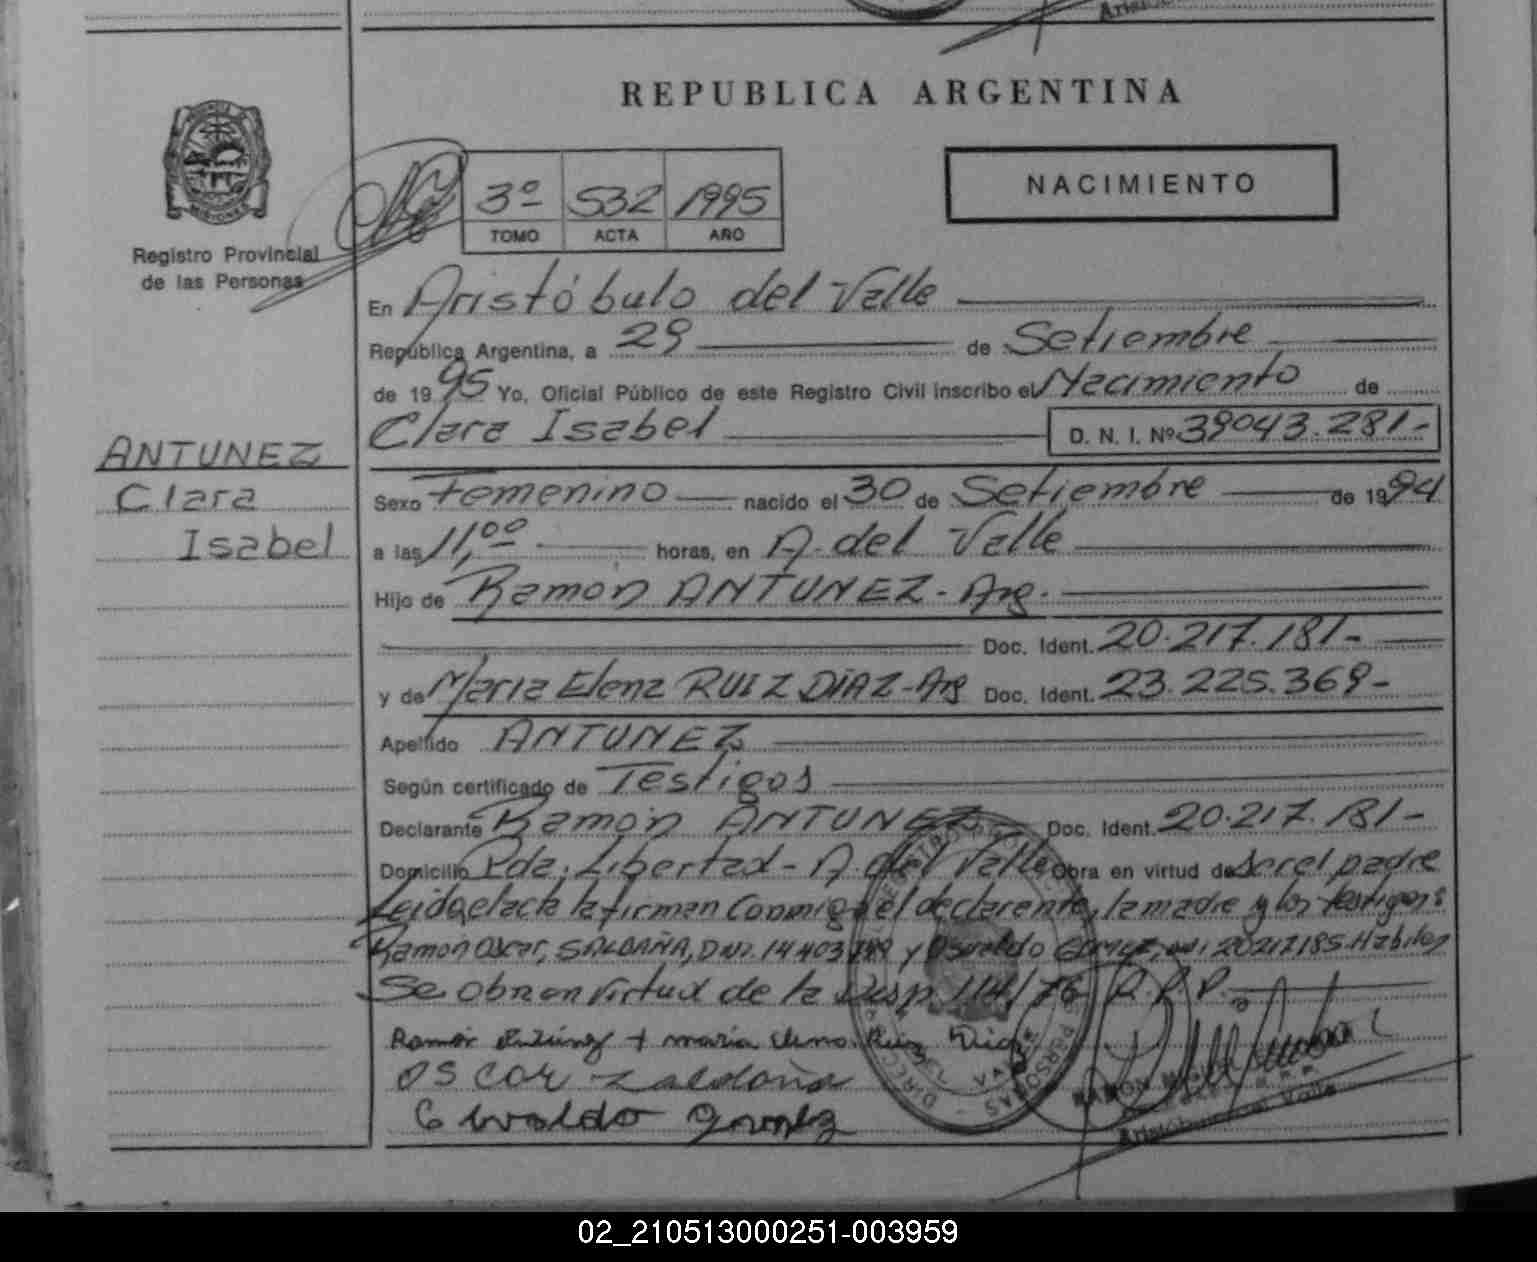 REPUBLICA ARGENTINA
MISIONES
Registro Provincial
de las Personas
3º 532 1995
TOMO ACTA AÑO
NACIMIENTO
En Aristóbulo del Valle
República Argentina, a 29 de Setiembre
de 1995 Yo, Oficial Público de este Registro Civil inscribo el Nacimiento de
Clara Isabel D. N. I. Nº 39043.281-
ANTUNEZ
Clara
Isabel
Sexo Femenino nacido el 30 de Setiembre de 1994
a las 11,00 horas, en A. del Valle
Hijo de Ramón ANTUNEZ - Arg.
Doc. Ident. 20.217.181-
y de Maria Elena RUIZ DIAZ - Arg Doc. Ident. 23.225.369-
Apellido ANTUNEZ
Según certificado de Testigos
Declarante Ramón ANTUNEZ Doc. Ident. 20.217.181-
Domicilio Pda. Libertad - A. del Valle Obra en virtud de ser el padre
Leida el acta la firman conmigo el declarante, la madre y los testigos:
Ramon Oscar, SALDAÑA, DNI. 14403 y Osvaldo Gomez, DNI 20217185. Habiles
Se obra en virtud de la Disp. 114/76 R.P.P.
Ramón Antúnez + maria Elena Ruiz Diaz
OSCAR Zaldaña
Osvaldo Gomez
RAMON
Aristóbulo del Valle
02_210513000251-003959